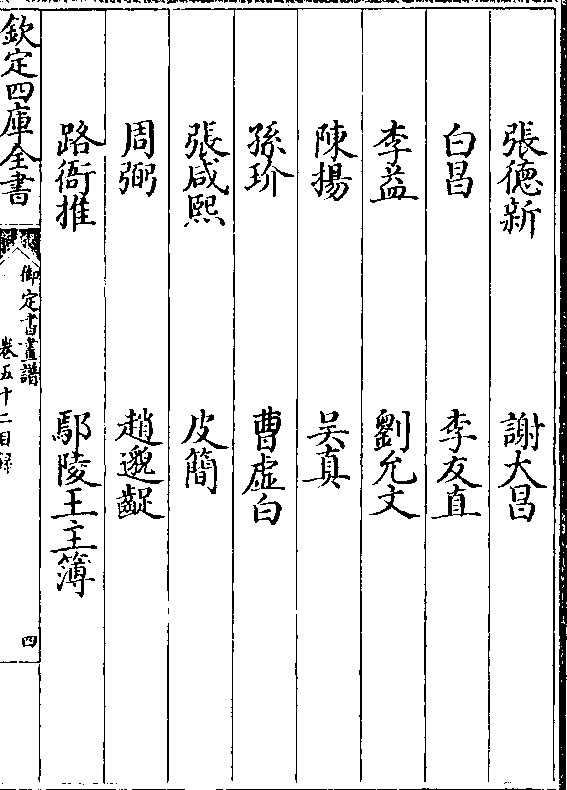 張德新 謝大昌
白昌 李友直
李益 劉允文
陳揚 吴真
孫玠 曹虚白
張咸熙 皮簡
周弼 趙邈齪
路衙推 鄢陵王主簿
欽定四庫全書
御定書畫譜
卷五十二目録
四